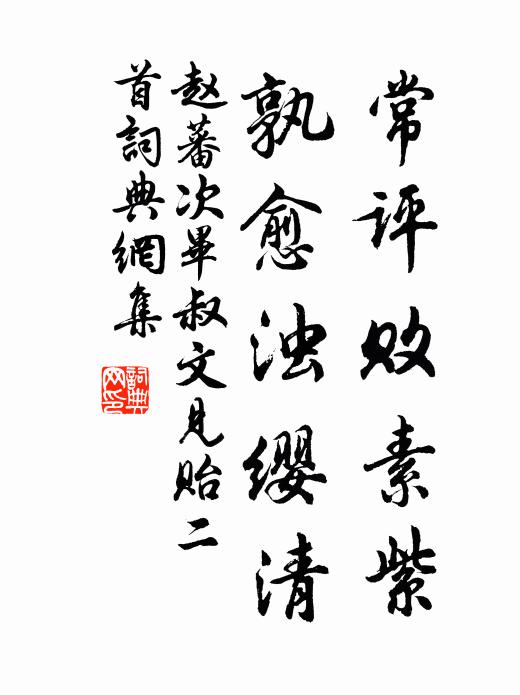 常评败素紫
孰愈浊缨清
赵蕃次畢叔文见貽二
首詞典網集
詞典网印